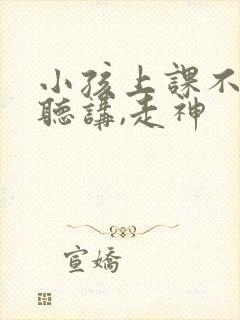 小孩上課不
聽講,走神
宣嬌